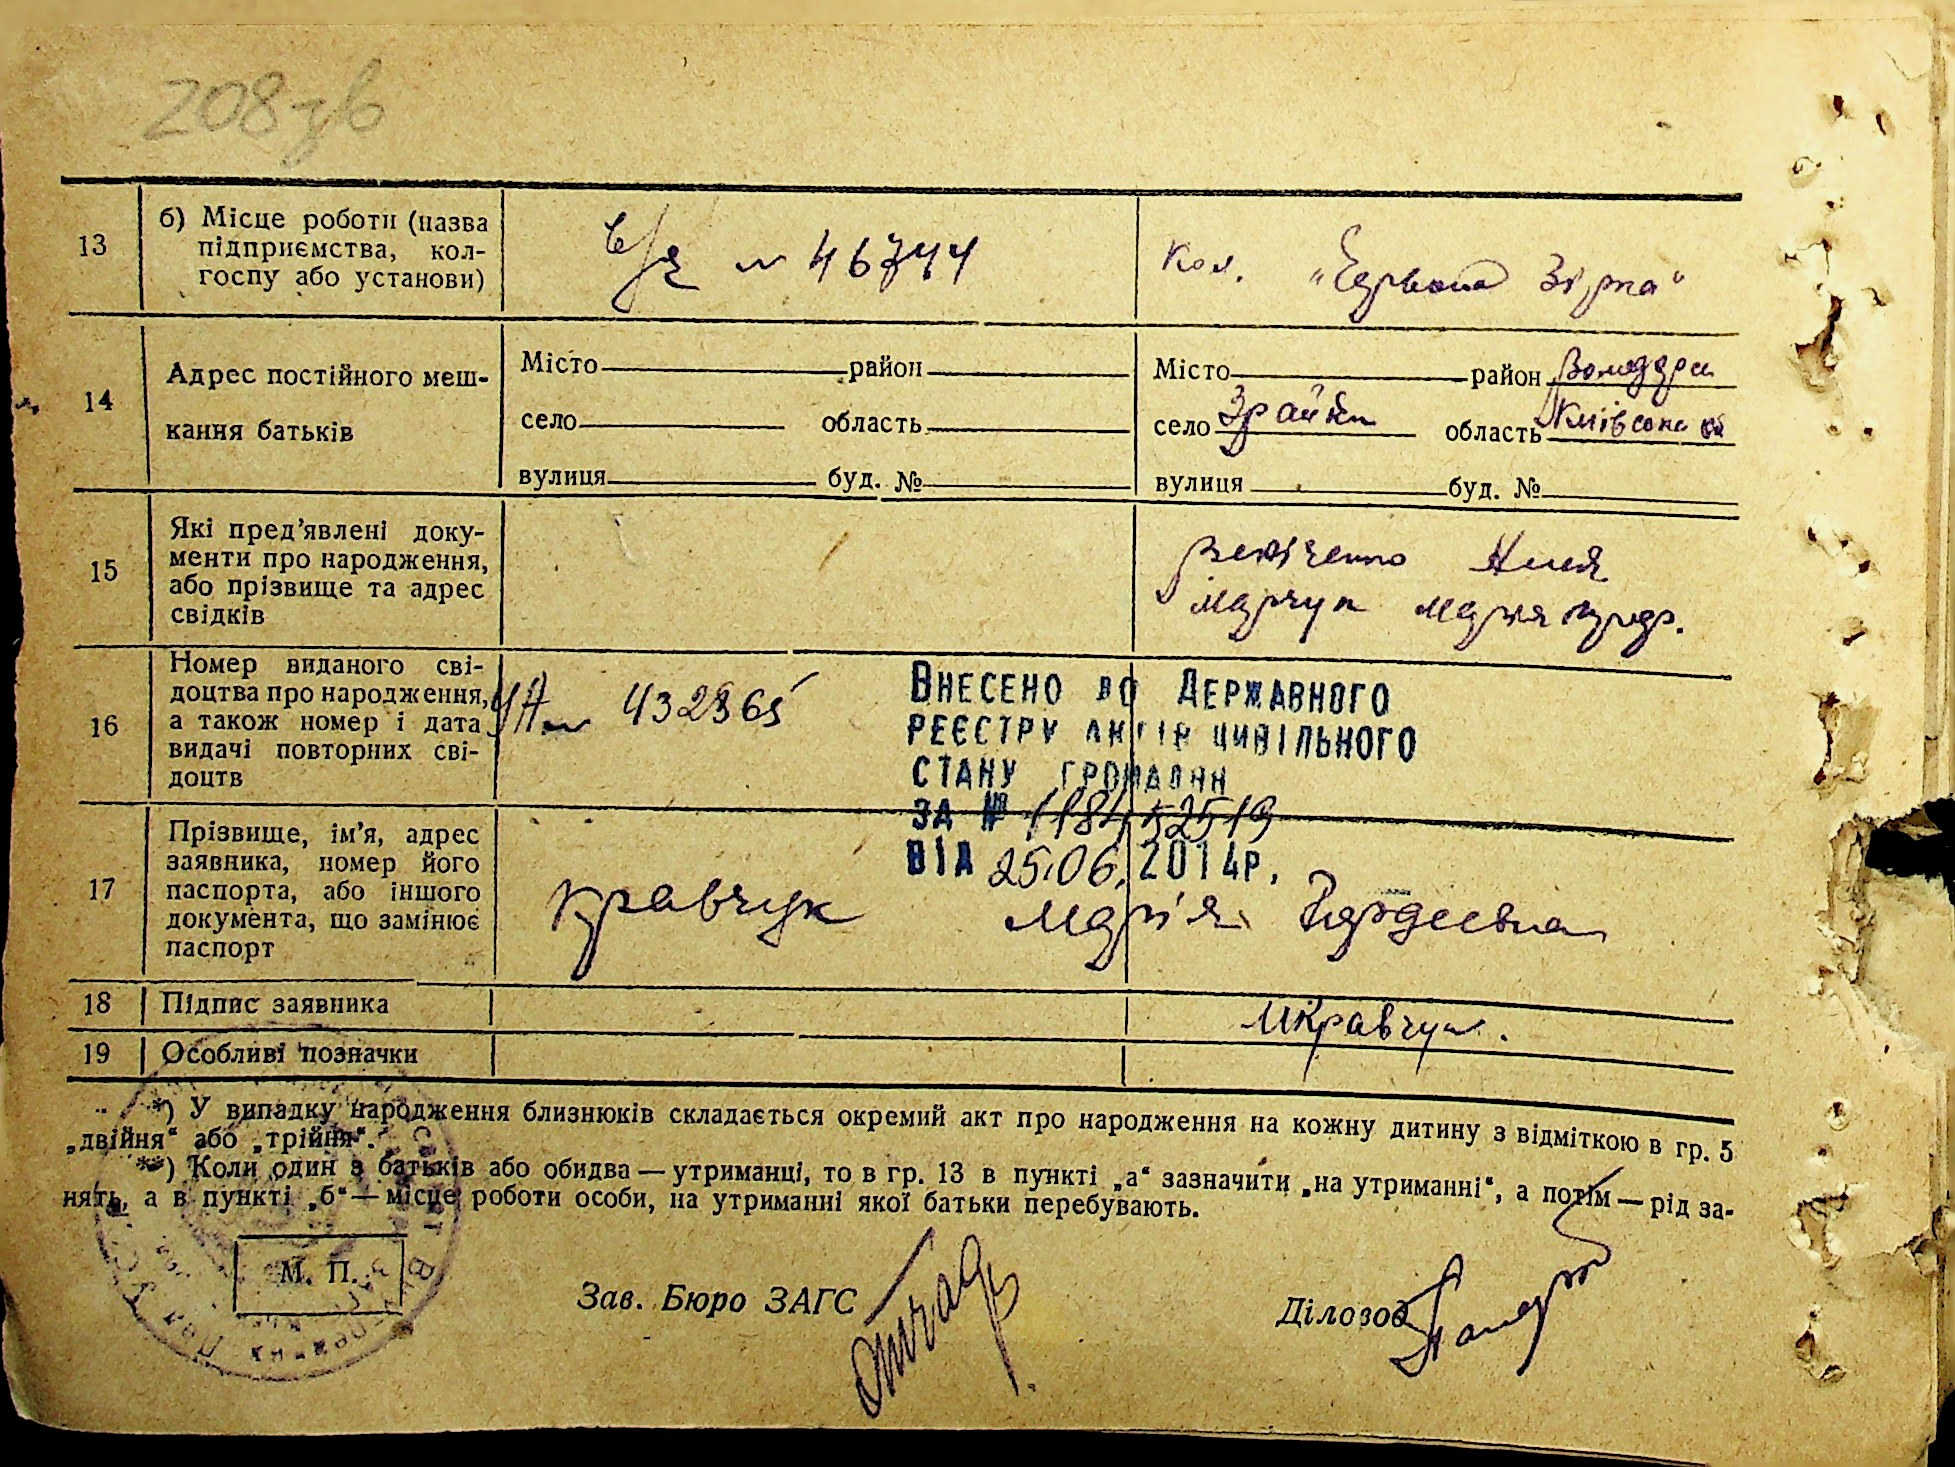 208зв
13
б) Місце роботи (назва
підприємства, кол-
госпу або установи)
в/ч № 46744
Кол. „Червона Зірка“
14
Адрес постійного меш-
кання батьків
Місто район
село область
вулиця буд. №
Місто район Володарськ
село Зрайки область Київська
вулиця буд. №
15
Які пред’явлені доку-
менти про народження,
або прізвище та адрес
свідків
Марчук Марія
16
Номер виданого сві-
доцтва про народження,
а також номер і дата
видачі повторних сві-
доцтв
УА № 432365
Внесено до Державного
реєстру актів цивільного
стану громадян
за №
від 25.06.2014р.
17
Прізвище, ім’я, адрес
заявника, номер його
паспорта, або іншого
документа, що замінює
паспорт
Кравчук Марія Гордеевна
18
Підпис заявника
МКравчук.
19
Особливі позначки
*) У випадку народження близнюків складається окремий акт про народження на кожну дитину з відміткою в гр. 5
„двійня“ або „трійня“.
**) Коли один з батьків або обидва — утриманці, то в гр. 13 в пункті „а“ зазначити „на утриманні“, а потім — рід за-
нять, а в пункті „б“ — місце роботи особи, на утриманні якої батьки перебувають.
М. П.
Зав. Бюро ЗАГС
Діловод